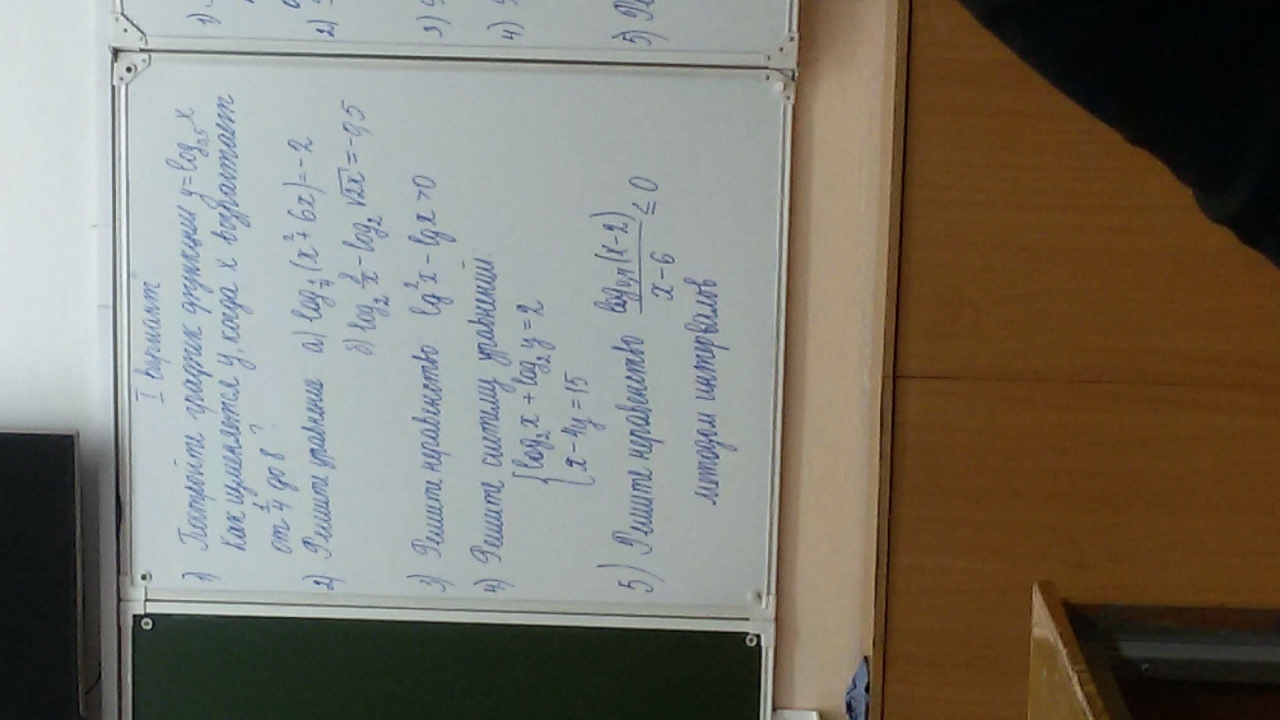 I вариант
1) Постройте график функции y=log₀,₅x
Как изменяется y, когда x возрастает
от 1/4 до 8?
2) Решите уравнение а) log_{1/7}(x²+6x)=-2
б) log₂ 8/x - log₂ √2x = -0,5
3) Решите неравенство lg²x - lg x > 0
4) Решите систему уравнений
{ log₂x + log₂y = 2
x - 4y = 15
5) Решите неравенство log₀,₇(x-2)/(x-6) ≤ 0
методом интервалов
1)
2)
3)
4)
5) Ре